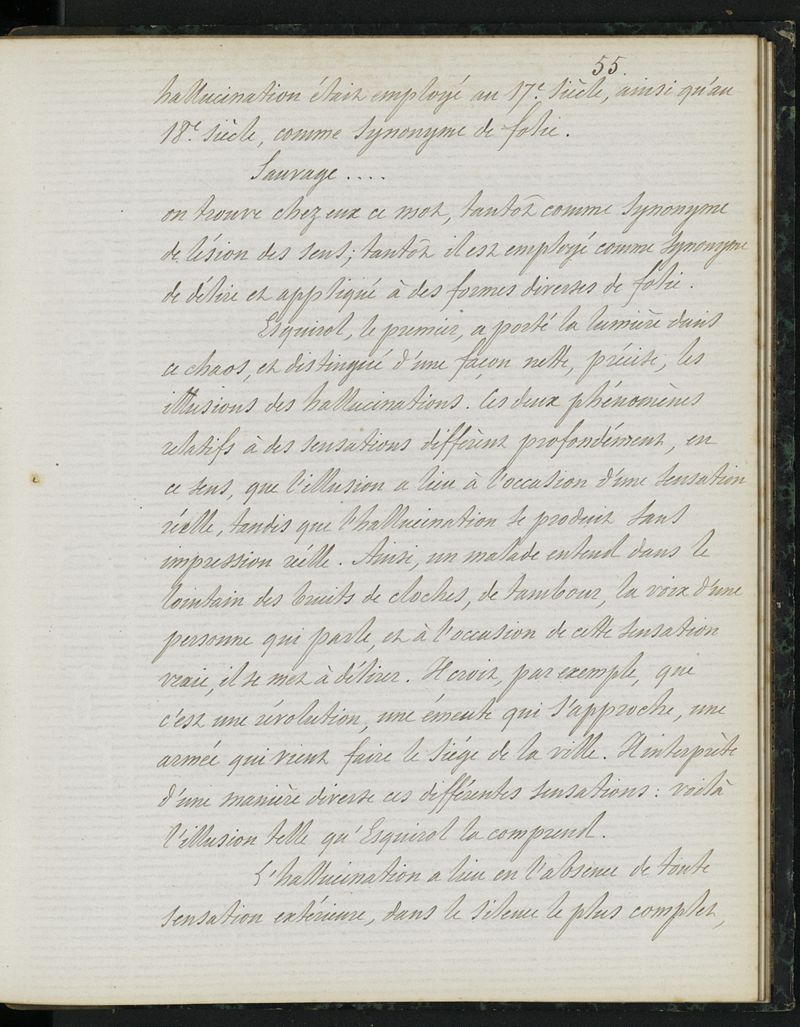 55.
hallucination était employé au 17e Siècle, ainsi qu'au
18e Siècle, comme Synonyme de folie.
Sauvage ....
on trouve chez eux ce mot, tantôt comme Synonyme
de lésion des sens; tantôt il est employé comme Synonyme
de délire et appliqué à des formes diverses de folie.
Esquirol, le premier, a porté la lumière dans
ce chaos, et distingué d'une façon nette, précise, les
illusions des hallucinations. Ces deux phénomènes
relatifs à des sensations diffèrent profondément, en
ce sens, que l'illusion a lieu à l'occasion d'une Sensation
réelle, tandis que l'hallucination se produit Sans
impression réelle. Ainsi, un malade entend dans le
lointain des bruits de cloches, de tambour, la voix d'une
personne qui parle, et à l'occasion de cette Sensation
vraie, il se met à délirer. Il croit, par exemple, que
c'est une révolution, une émeute qui S'approche, une
armée qui vient faire le Siége de la ville. Il interprète
d'une manière diverse ces différentes Sensations: voilà
l'illusion telle qu'Esquirol la comprend.
L'hallucination a lieu en l'absence de toute
Sensation extérieure, dans le Silence le plus complet,